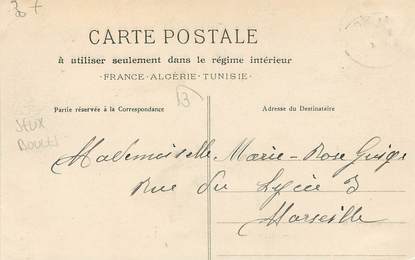 30 +
CARTE POSTALE
à utiliser seulement dans le régime intérieur
- FRANCE - ALGÉRIE - TUNISIE -
Partie réservée à la Correspondance
Adresse du Destinataire
13
JEUX
BOULES
Mademoiselle Marie-Rose
Rue du Lycée 3
Marseille